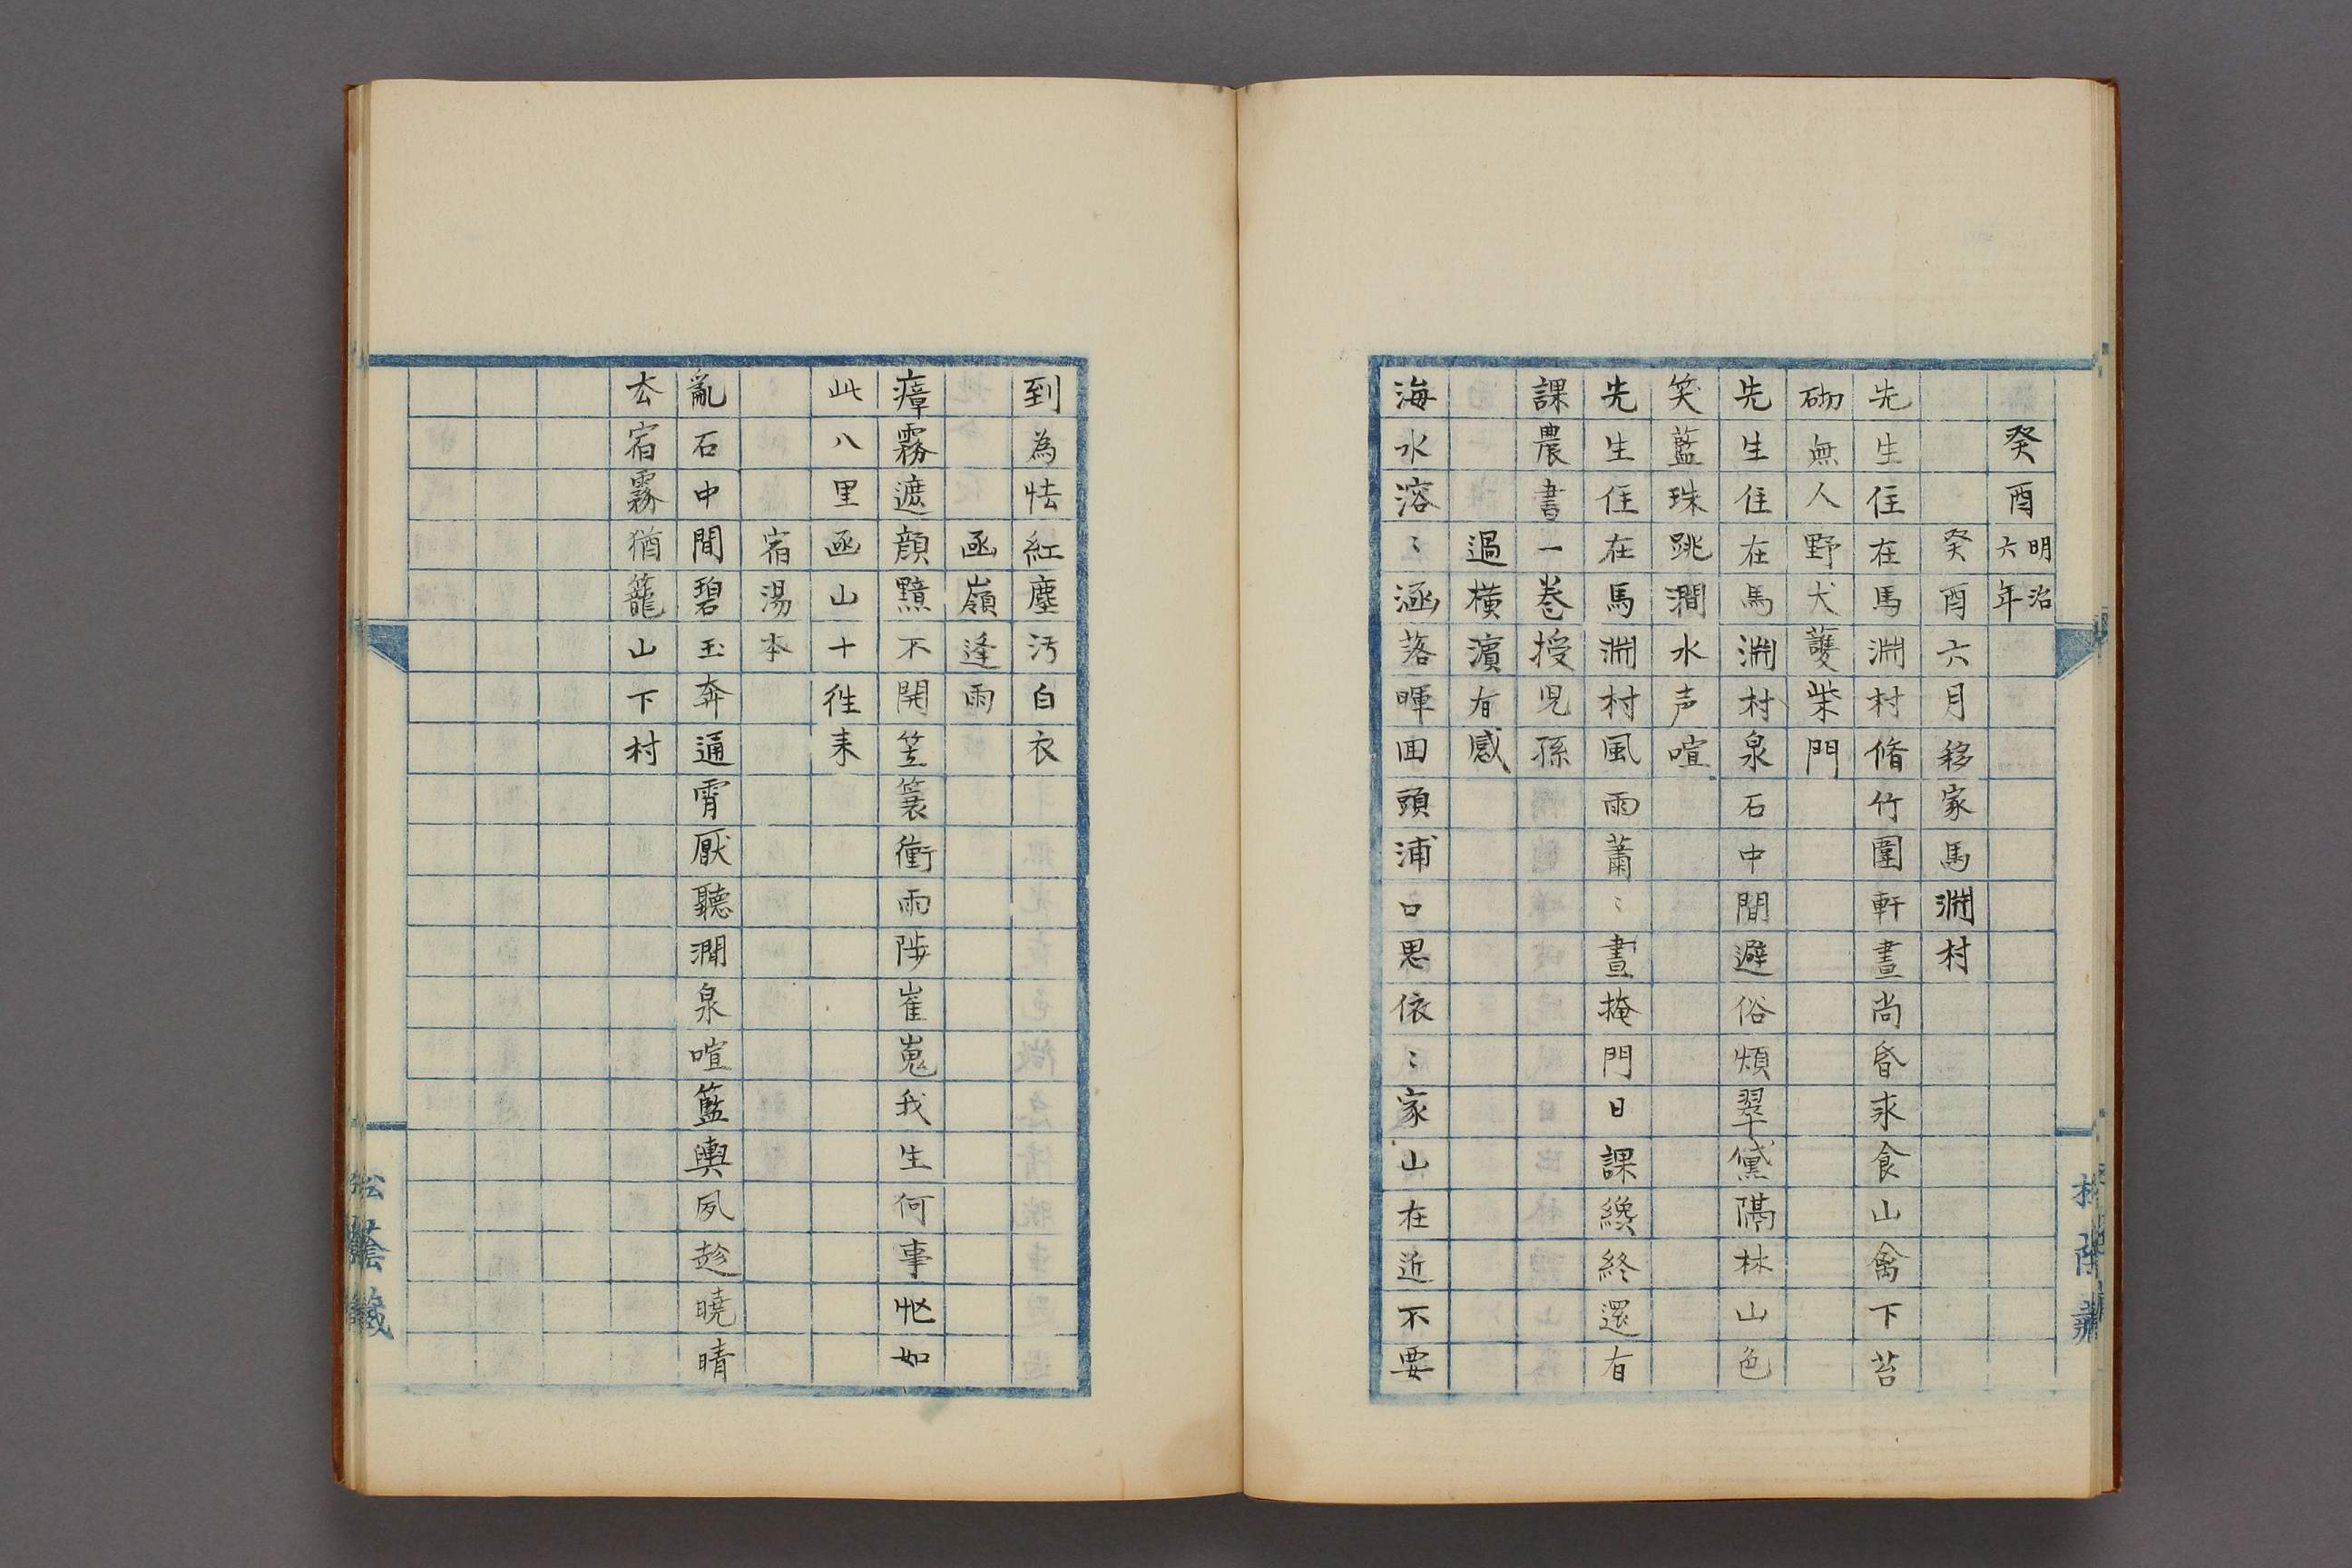 癸酉明治六年
癸酉六月移家馬淵村
先生住在馬淵村脩竹圍軒晝尚昏求食山禽下苔
砌無人野犬護柴門
先生住在馬淵村泉石中間避俗煩翠黛隔林山色
笑藍珠跳澗水声喧
先生住在馬淵村風雨蕭〻晝掩門日課纔終還有
課農書一巻授児孫
過横濱有感
海水溶〻涵落暉回頭浦口思依〻家山在近不要
到為怯紅塵汚白衣
函嶺逢雨
瘴霧遮顔黯不開笠簑衝雨陟崔嵬我生何事忙如
此八里函山十徃来
宿湯本
亂石中間碧玉奔通霄厭聽澗泉喧籃輿夙趁曉晴
去宿霧猶籠山下村